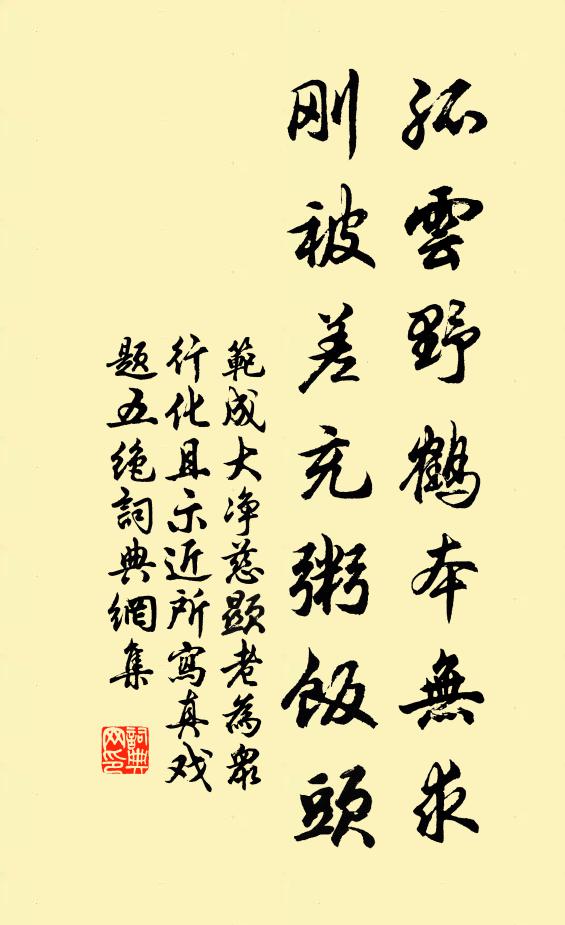 孤雲野鶴本無求
刚被差充粥飯頭
範成大净慈顯老為衆
行化且示近所寫真戏
题五绝詞典網集
詞典
网印